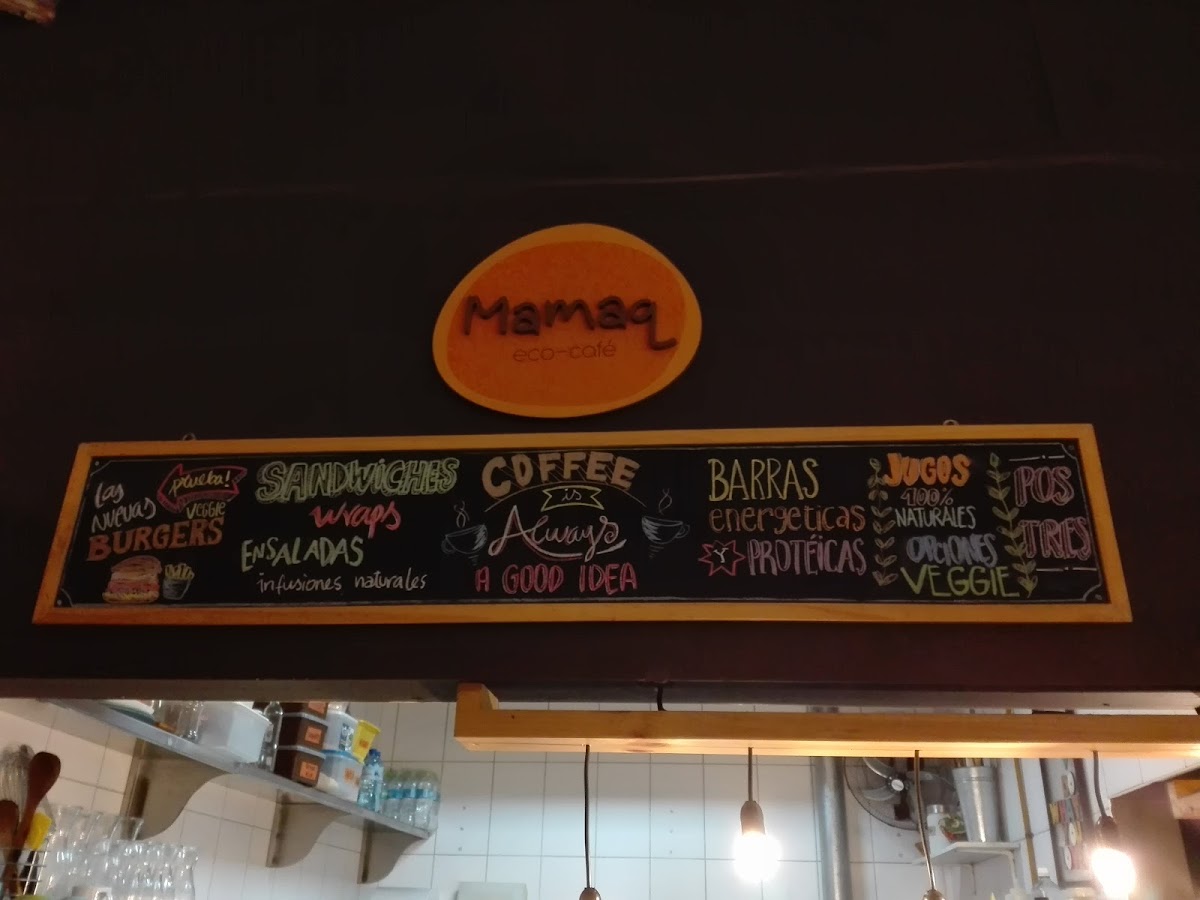 Mamaq
eco-café
las
nuevas
BURGERS
prueba!
VEGGIE
SANDWICHES
wraps
ENSALADAS
infusiones naturales
COFFEE
is
Always
A GOOD IDEA
BARRAS
energeticas
Y PROTÉICAS
JUGOS
100%
NATURALES
OPCIONES
VEGGIE
POS
TRES